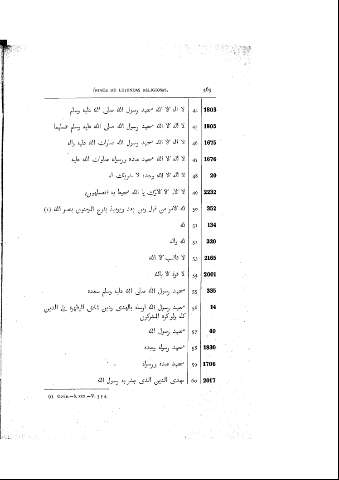 ÍNDICE DE LEYENDAS RELIGIOSAS. 463
لا اله الا الله محمد رسول الله صلى الله عليه وسلم 44 1803
لا اله الا الله محمد رسول الله صلى الله عليه وسلم تسليما 45 1803
لا اله الا الله محمد رسول الله صلوات الله عليه واله 46 1675
لا اله الا الله محمد عبده ورسوله صلوات الله عليه 47 1676
لا اله الا الله وحده لا شريك له 48 20
49 2232
لله الامر من قبل ومن بعد ويومئذ يفرح المومنون بنصر الله (1) 50 352
لله 51 134
52 320
لا غالب الا الله 53 2165
لا قوة الا بالله 54 2001
محمد رسول الله صلى الله عليه وسلم 55 335
محمد رسول الله ارسله بالهدى ودين الحق ليظهره على الدين 56 14
كله ولو كره المشركون
محمد رسول الله 57 40
محمد رسوله وعبده 58 1830
محمد عبده ورسوله 59 1706
مهدى الدين الذى بشر به رسول الله 60 2017